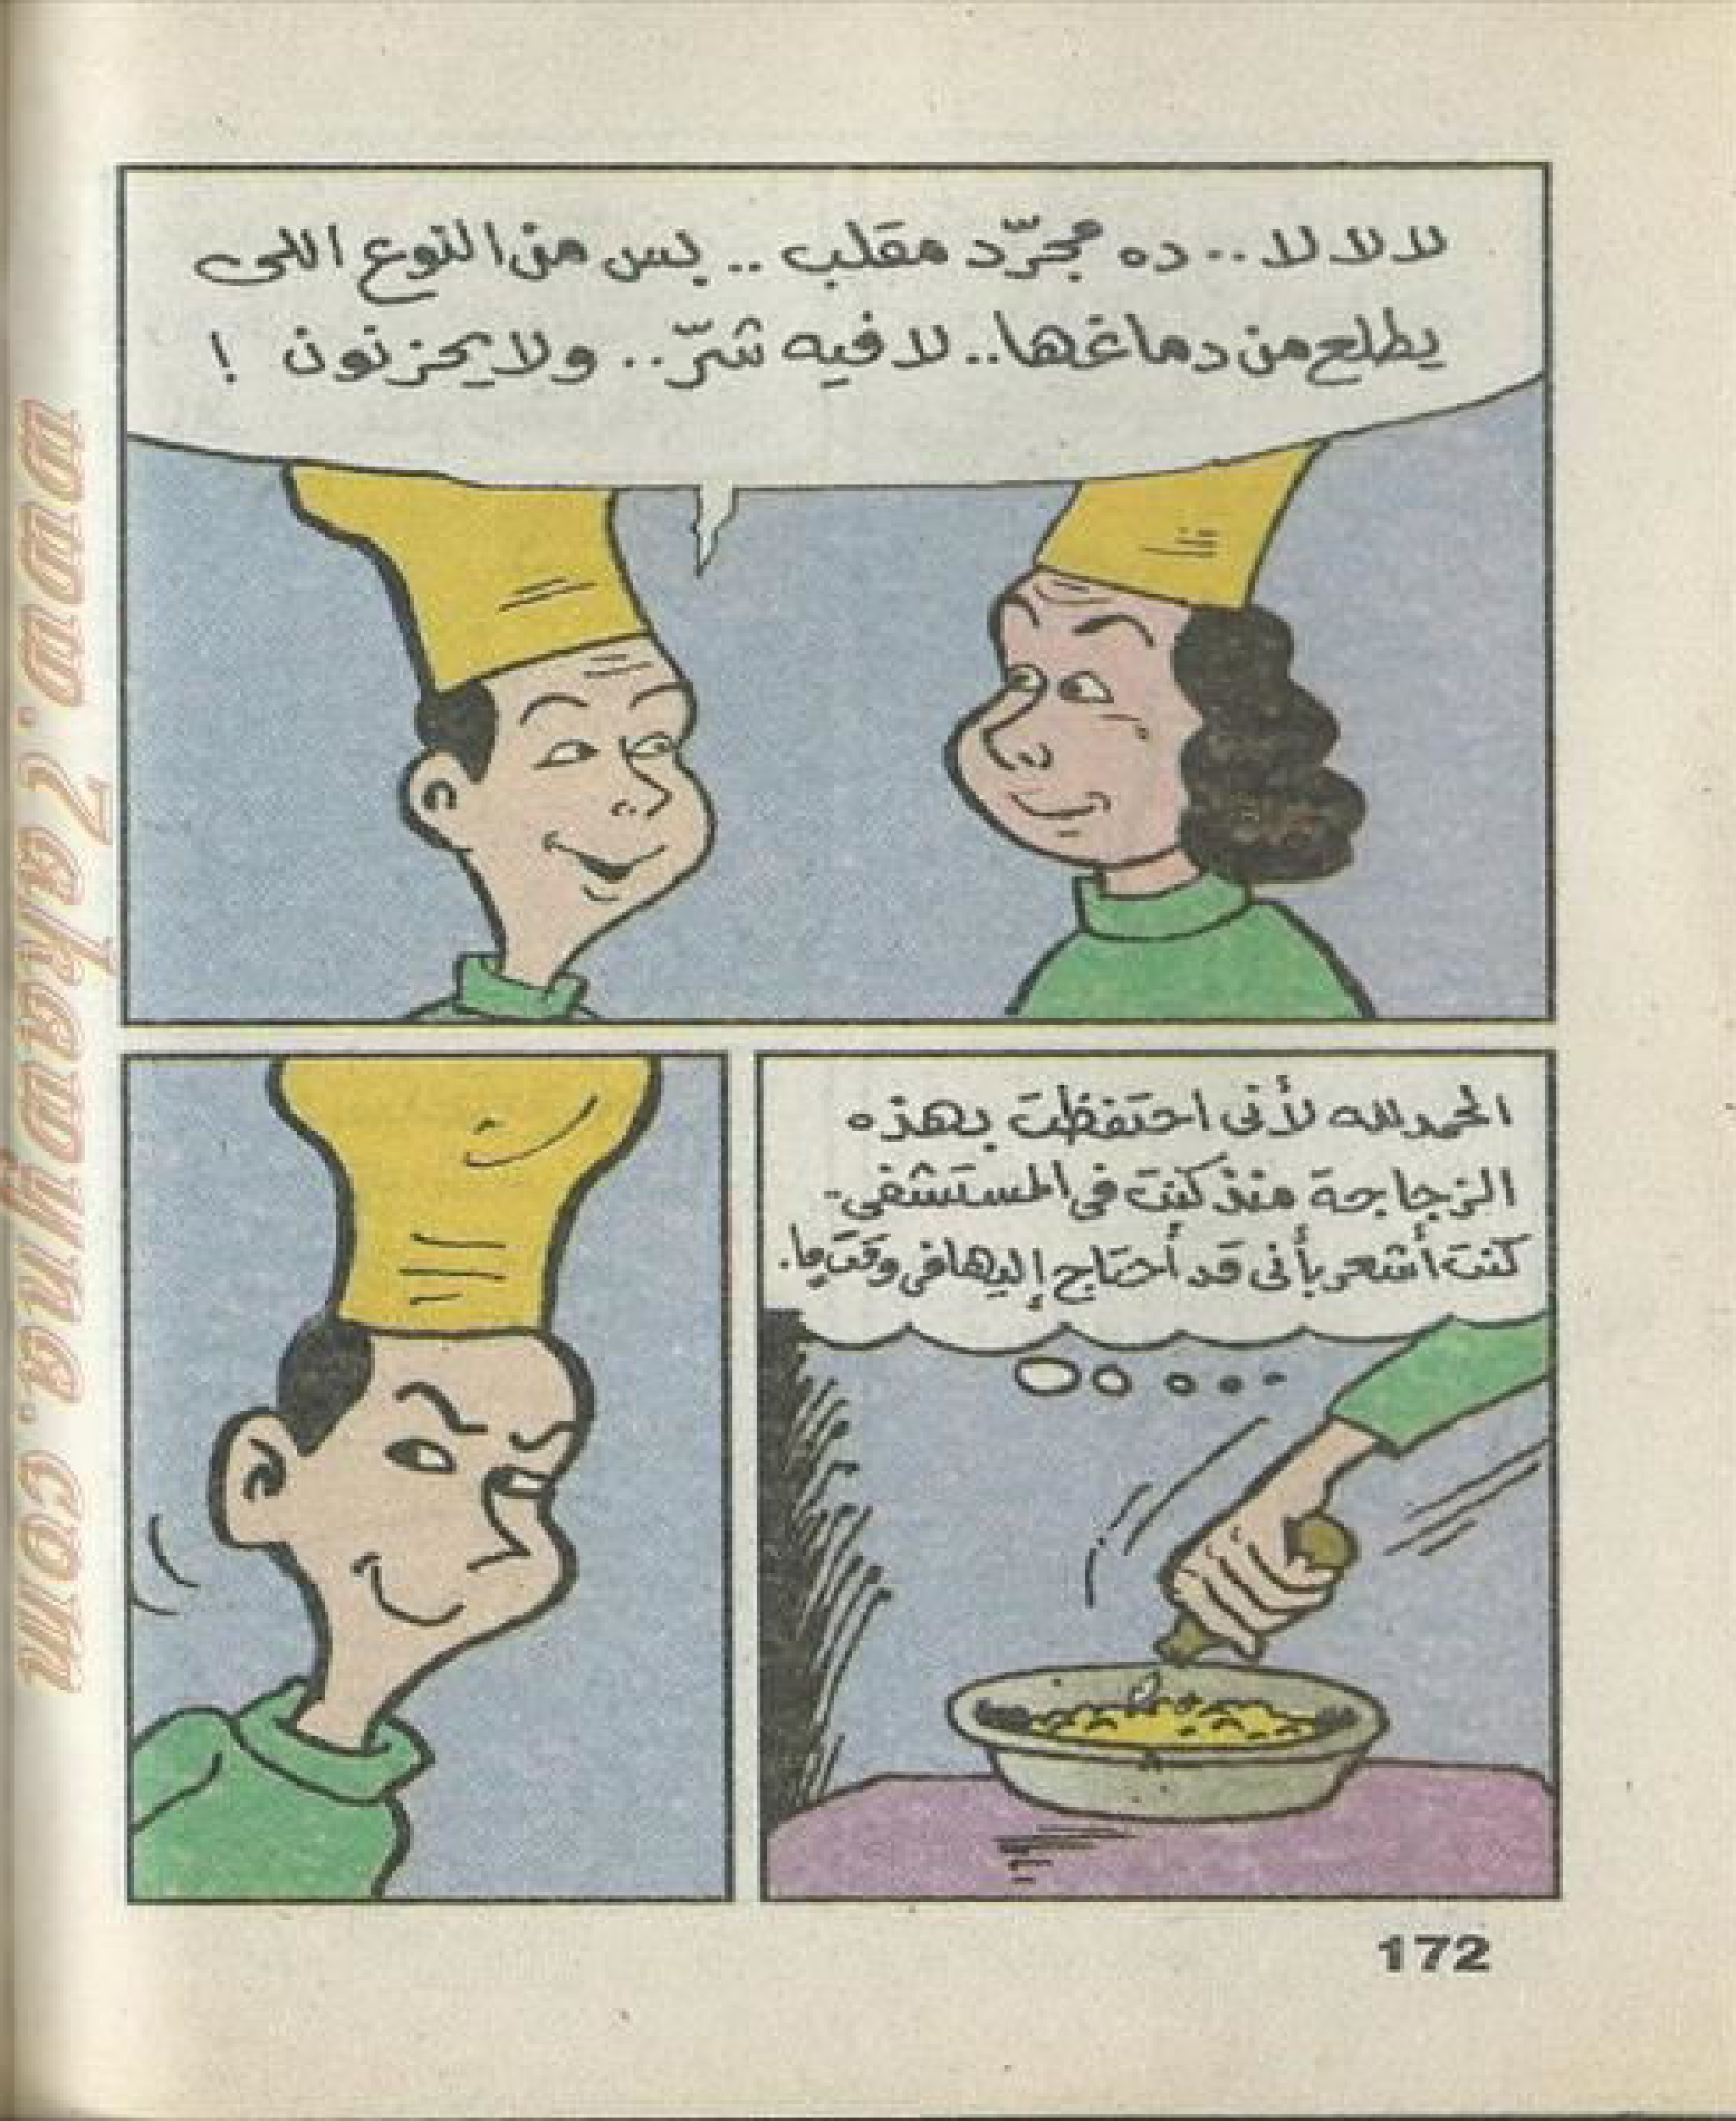 لا لا لا .. ده مجرّد مقلب .. بس من النوع اللى
يطلع من دماغها .. لا فيه شرّ .. ولا يحزنون !
الحمد لله لأنى احتفظت بهذه
الزجاجة منذ كنت فى المستشفى ..
كنت أشعر بأنى قد أحتاج إليها فى وقت ما.
172